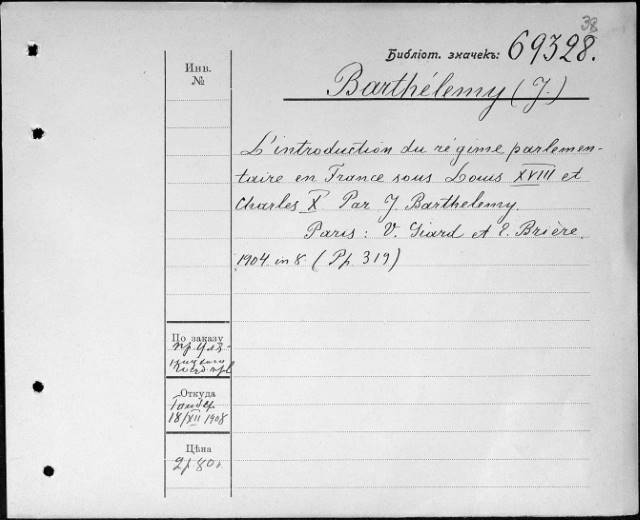 38
Библіот. значекъ: 69328.
Barthélemy (J.)
Инв.
№
L'introduction du régime parlemen-
taire en France sous Louis XVIII et
Charles X Par J Barthelemy.
Paris: V. Giard et E. Brière.
1904 in 8 (Pp. 319)
По заказу
Откуда
18/XII 1908
Цѣна
2р 80к